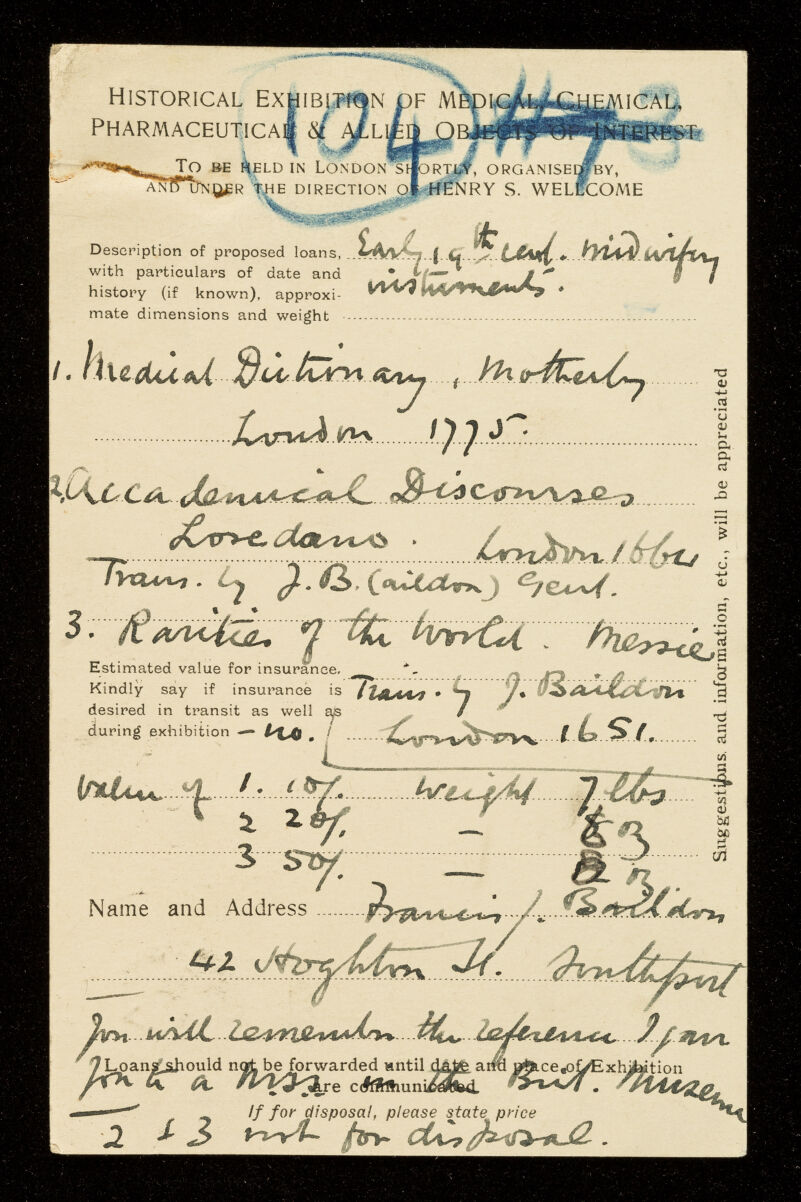 HISTORICAL EXHIBITION OF MEDICAL, CHEMICAL,
PHARMACEUTICAL & ALLIED OBJECTS OF INTEREST
104
TO BE HELD IN LONDON SHORTLY, ORGANISED BY,
AND UNDER THE DIRECTION OF HENRY S. WELLCOME
Description of proposed loans, Early 19th cent. Midwifery
with particulars of date and instruments.
history (if known), approxi-
mate dimensions and weight
1. Medical Dictionary, Motherby
London 1775.
2. Accademical Discourses
Loredano. London 166
Trans. by J.B. (aildon) Gent.
3. Rarities of the World. Messie
Estimated value for insurance.
Kindly say if insurance is Trans. by J. Baildon
desired in transit as well as
during exhibition – no. London 1651.
Value of 1. 10/. Weight 7 lbs
2 20/. — 8 oz
3 50/. — 12 oz
Name and Address Francis J. Baildon
42 Hoghton St. Southport
You will remember the reference I gave
you to a MSS in the Brit. Museum
Loans should not be forwarded until date and place of Exhibition
are communicated
If for disposal, please state price
2 & 3 not for disposal.
Suggestions and information, etc., will be appreciated